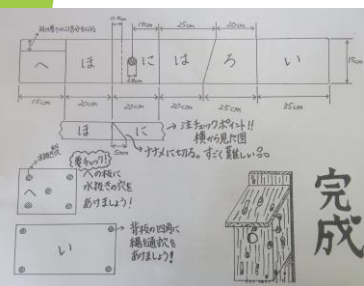 10cm 25cm 20cm
へ ほ に は ろ い
15cm
15cm 20cm 20cm 20cm 25cm 35cm
ほ に
→注チェックポイント!!
横から見た図
5mm
ナナメに切る。すごく難しい。
要チェック!!
への板に
水抜きの穴を
あけましょう!
へ
い
背板の四角に
縄を通す穴を
あけましょう!
完成